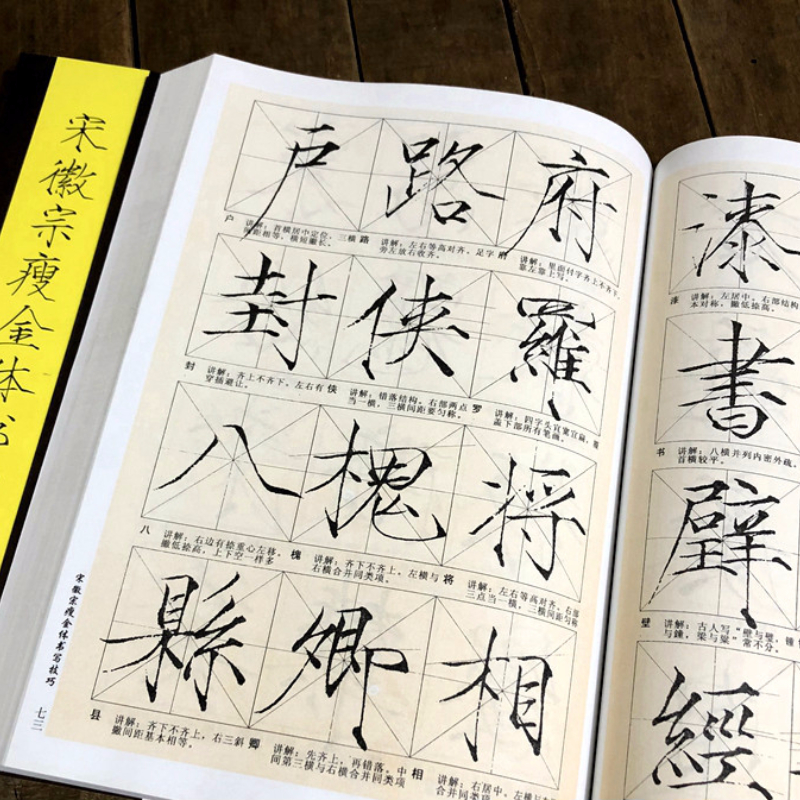 宋徽宗瘦金体书
户路府
户 讲解：首横居中定位，三横间距相等，横短撇长。
路 讲解：左右等高对齐，足字旁左放右收齐。
府 讲解：里面付字齐上不齐下，靠左靠上写。
封俠羅
封 讲解：齐上不齐下，左右有穿插避让。
侠 讲解：错落结构，右部两点当一横，三横间距要匀称。
罗 讲解：四字头宜宽宜扁，覆盖下部所有笔画。
八槐将
八 讲解：右边有捺重心左移，撇低捺高，上下空一样多
槐 讲解：齐下不齐上，左横与右横合并同类项。
将 讲解：左右等高对齐，右部三点当一横，三横间距匀称
縣卿相
县 讲解：齐下不齐上，右三斜撇间距基本相等。
卿 讲解：先齐上，再错落，中间第三横与右横合并同类项
相 讲解：右居中，左横与
合并同类项
宋徽宗瘦金体书写技巧
七三
漆
漆 讲解：左居中，右部结构
本对称，撇低捺高。
書
书 讲解：八横并列内密外疏，
首横较平。
壁
壁 讲解：古人写“壁与璧，锺
与鐘，梁与粱”常不分。
經